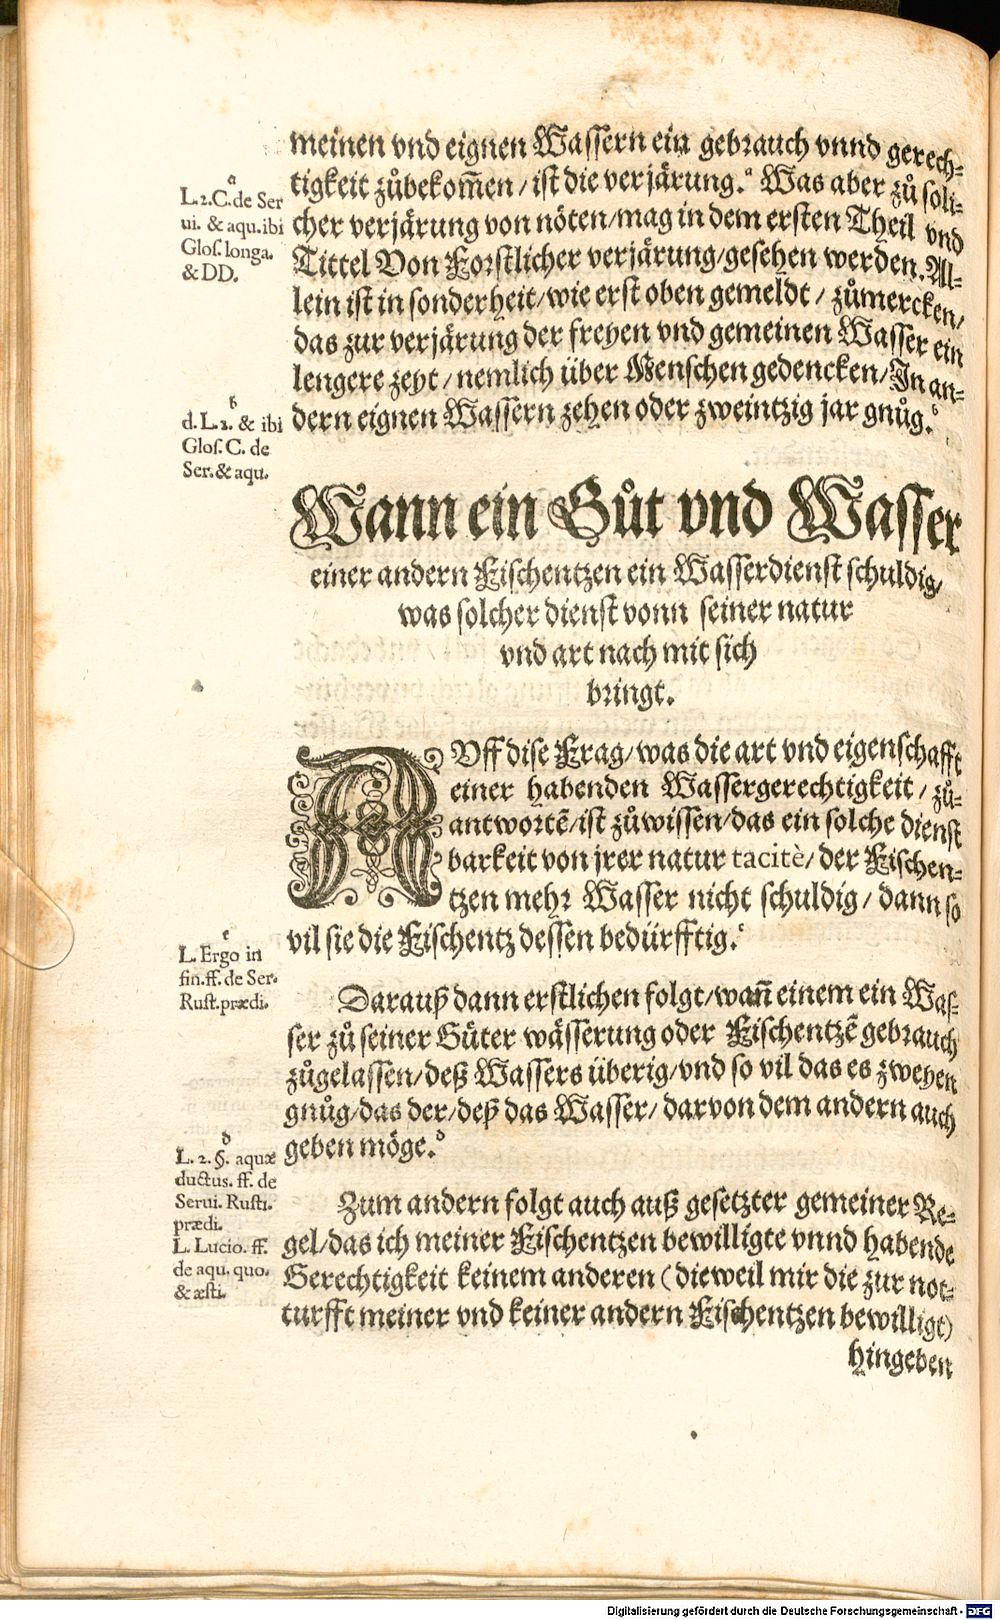 meinen vnd eignen Wassern ein gebrauch vnnd gerech-
tigkeit zůbekom̃en / ist die verjärung.ᵃ Was aber zů soli-
cher verjärung von nöten/mag in dem ersten Theil vnd
Tittel Von Forstlicher verjärung/gesehen werden. Al-
lein ist in sonderheit/wie erst oben gemeldt / zůmercken/
das zur verjärung der freyen vnd gemeinen Wasser ein
lengere zeyt / nemlich über Menschen gedencken/In an-
dern eignen Wassern zehen oder zweintzig jar gnůg.ᵇ
a
L. 2. C. de Ser
ui. & aqu. ibi
Glos. longa.
& DD.
b
d. L. 2. & ibi
Glos. C. de
Ser. & aqu.
Wann ein Gůt vnd Wasser
einer andern Fischentzen ein Wasserdienst schuldig/
was solcher dienst vonn seiner natur
vnd art nach mit sich
bringt.
AVff dise Frag/was die art vnd eigenschafft
einer habenden Wassergerechtigkeit / zů-
antwortẽ/ist zůwissen/das ein solche dienst
barkeit von jrer natur tacitè/der Fischen-
tzen mehr Wasser nicht schuldig / dann so
vil sie die Fischentz dessen bedürfftig.ᶜ
c
L. Ergo in
fin. ff. de Ser.
Rust. prædi.
Darauß dann erstlichen folgt/wañ einem ein Was-
ser zů seiner Güter wässerung oder Fischentzẽ gebrauch
zůgelassen/deß Wassers überig/vnd so vil das es zweyen
gnůg/das der/deß das Wasser/darvon dem andern auch
geben möge.ᵈ
d
L. 2. §. aquæ
ductus. ff. de
Serui. Rusti.
prædi.
L. Lucio. ff.
de aqu. quo.
& æsti.
Zum andern folgt auch auß gesetzter gemeiner Re-
gel/das ich meiner Fischentzen bewilligte vnnd habende
Gerechtigkeit keinem anderen (dieweil mir die zur not-
turfft meiner vnd keiner andern Fischentzen bewilligt)
hingeben
Digitalisierung gefördert durch die Deutsche Forschungsgemeinschaft - DFG